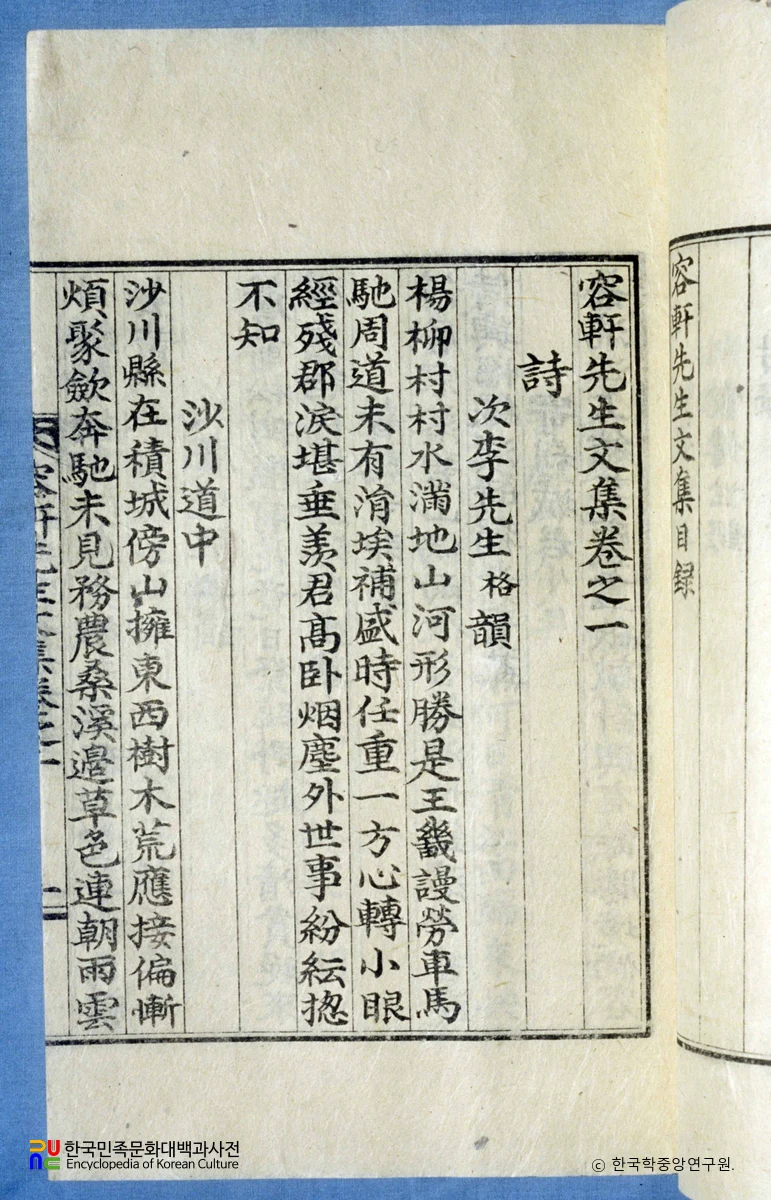 容軒先生文集目録
容軒先生文集卷之一
詩
次李先生格韻
楊柳村村水滿地山河形勝是王畿謾勞車馬
馳周道未有涓埃補盛時任重一方心轉小眼
經殘郡淚堪垂羨君高卧烟塵外世事紛紜揔
不知
沙川道中
沙川縣在積城傍山擁東西樹木荒應接偏慚
煩聚斂奔馳未見務農桑溪邊草色連朝雨雲
容軒先生文集卷之一
한국민족문화대백과사전
Encyclopedia of Korean Culture
© 한국학중앙연구원.